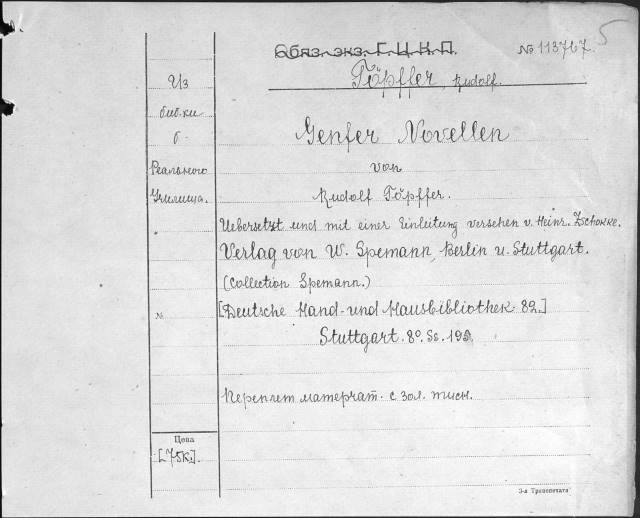 Обяз. экз. Г.Ц.К.П.
№ 113767.
5
Töpffer, Rudolf.
Из
биб-ки
б.
Реального
Училища.
Genfer Novellen
von
Rudolf Töpffer.
Uebersetzt und mit einer Einleitung versehen v. Heinr. Zschokke.
Verlag von W. Spemann, Berlin u. Stuttgart.
(Collection Spemann.)
№
[Deutsche Hand- und Hausbibliothek 82.]
Stuttgart. 8°. Ss.
Переплет матерчат. с зол. тисн.
Цена
[75к.].
3-я Трансцечать